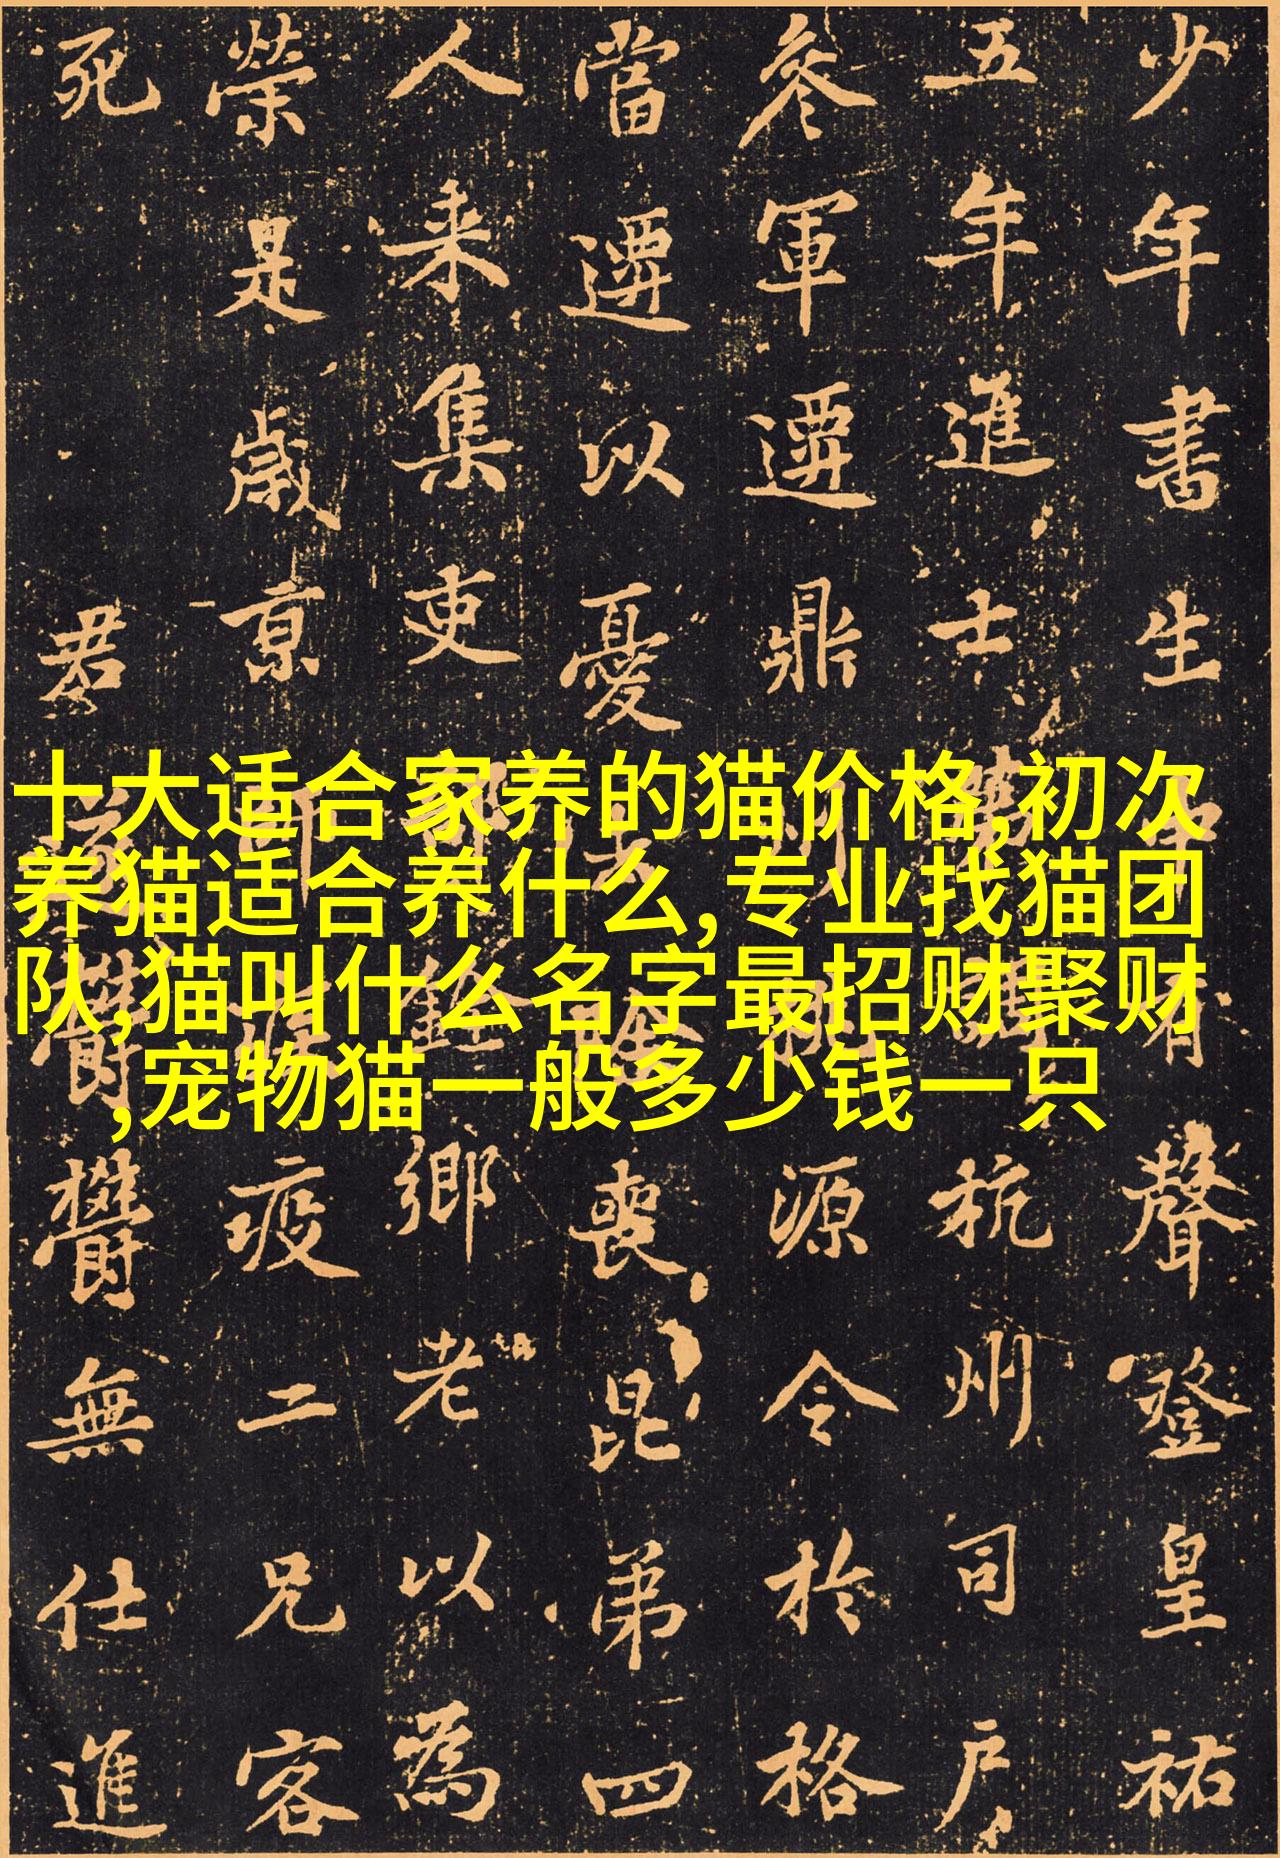 少年書生有聲登皇祐
五年進士杭州司戶
參軍遷鼎州桃源令於格
當遷以憂去喪昆弟四
人来集吏部鄉老以為
榮是歲京師疫二兄客
死 君遂鬱鬱無仕進
十大适合家养的猫价格,初次
养猫适合养什么,专业找猫团
队,猫叫什么名字最招财聚财
,宠物猫一般多少钱一只